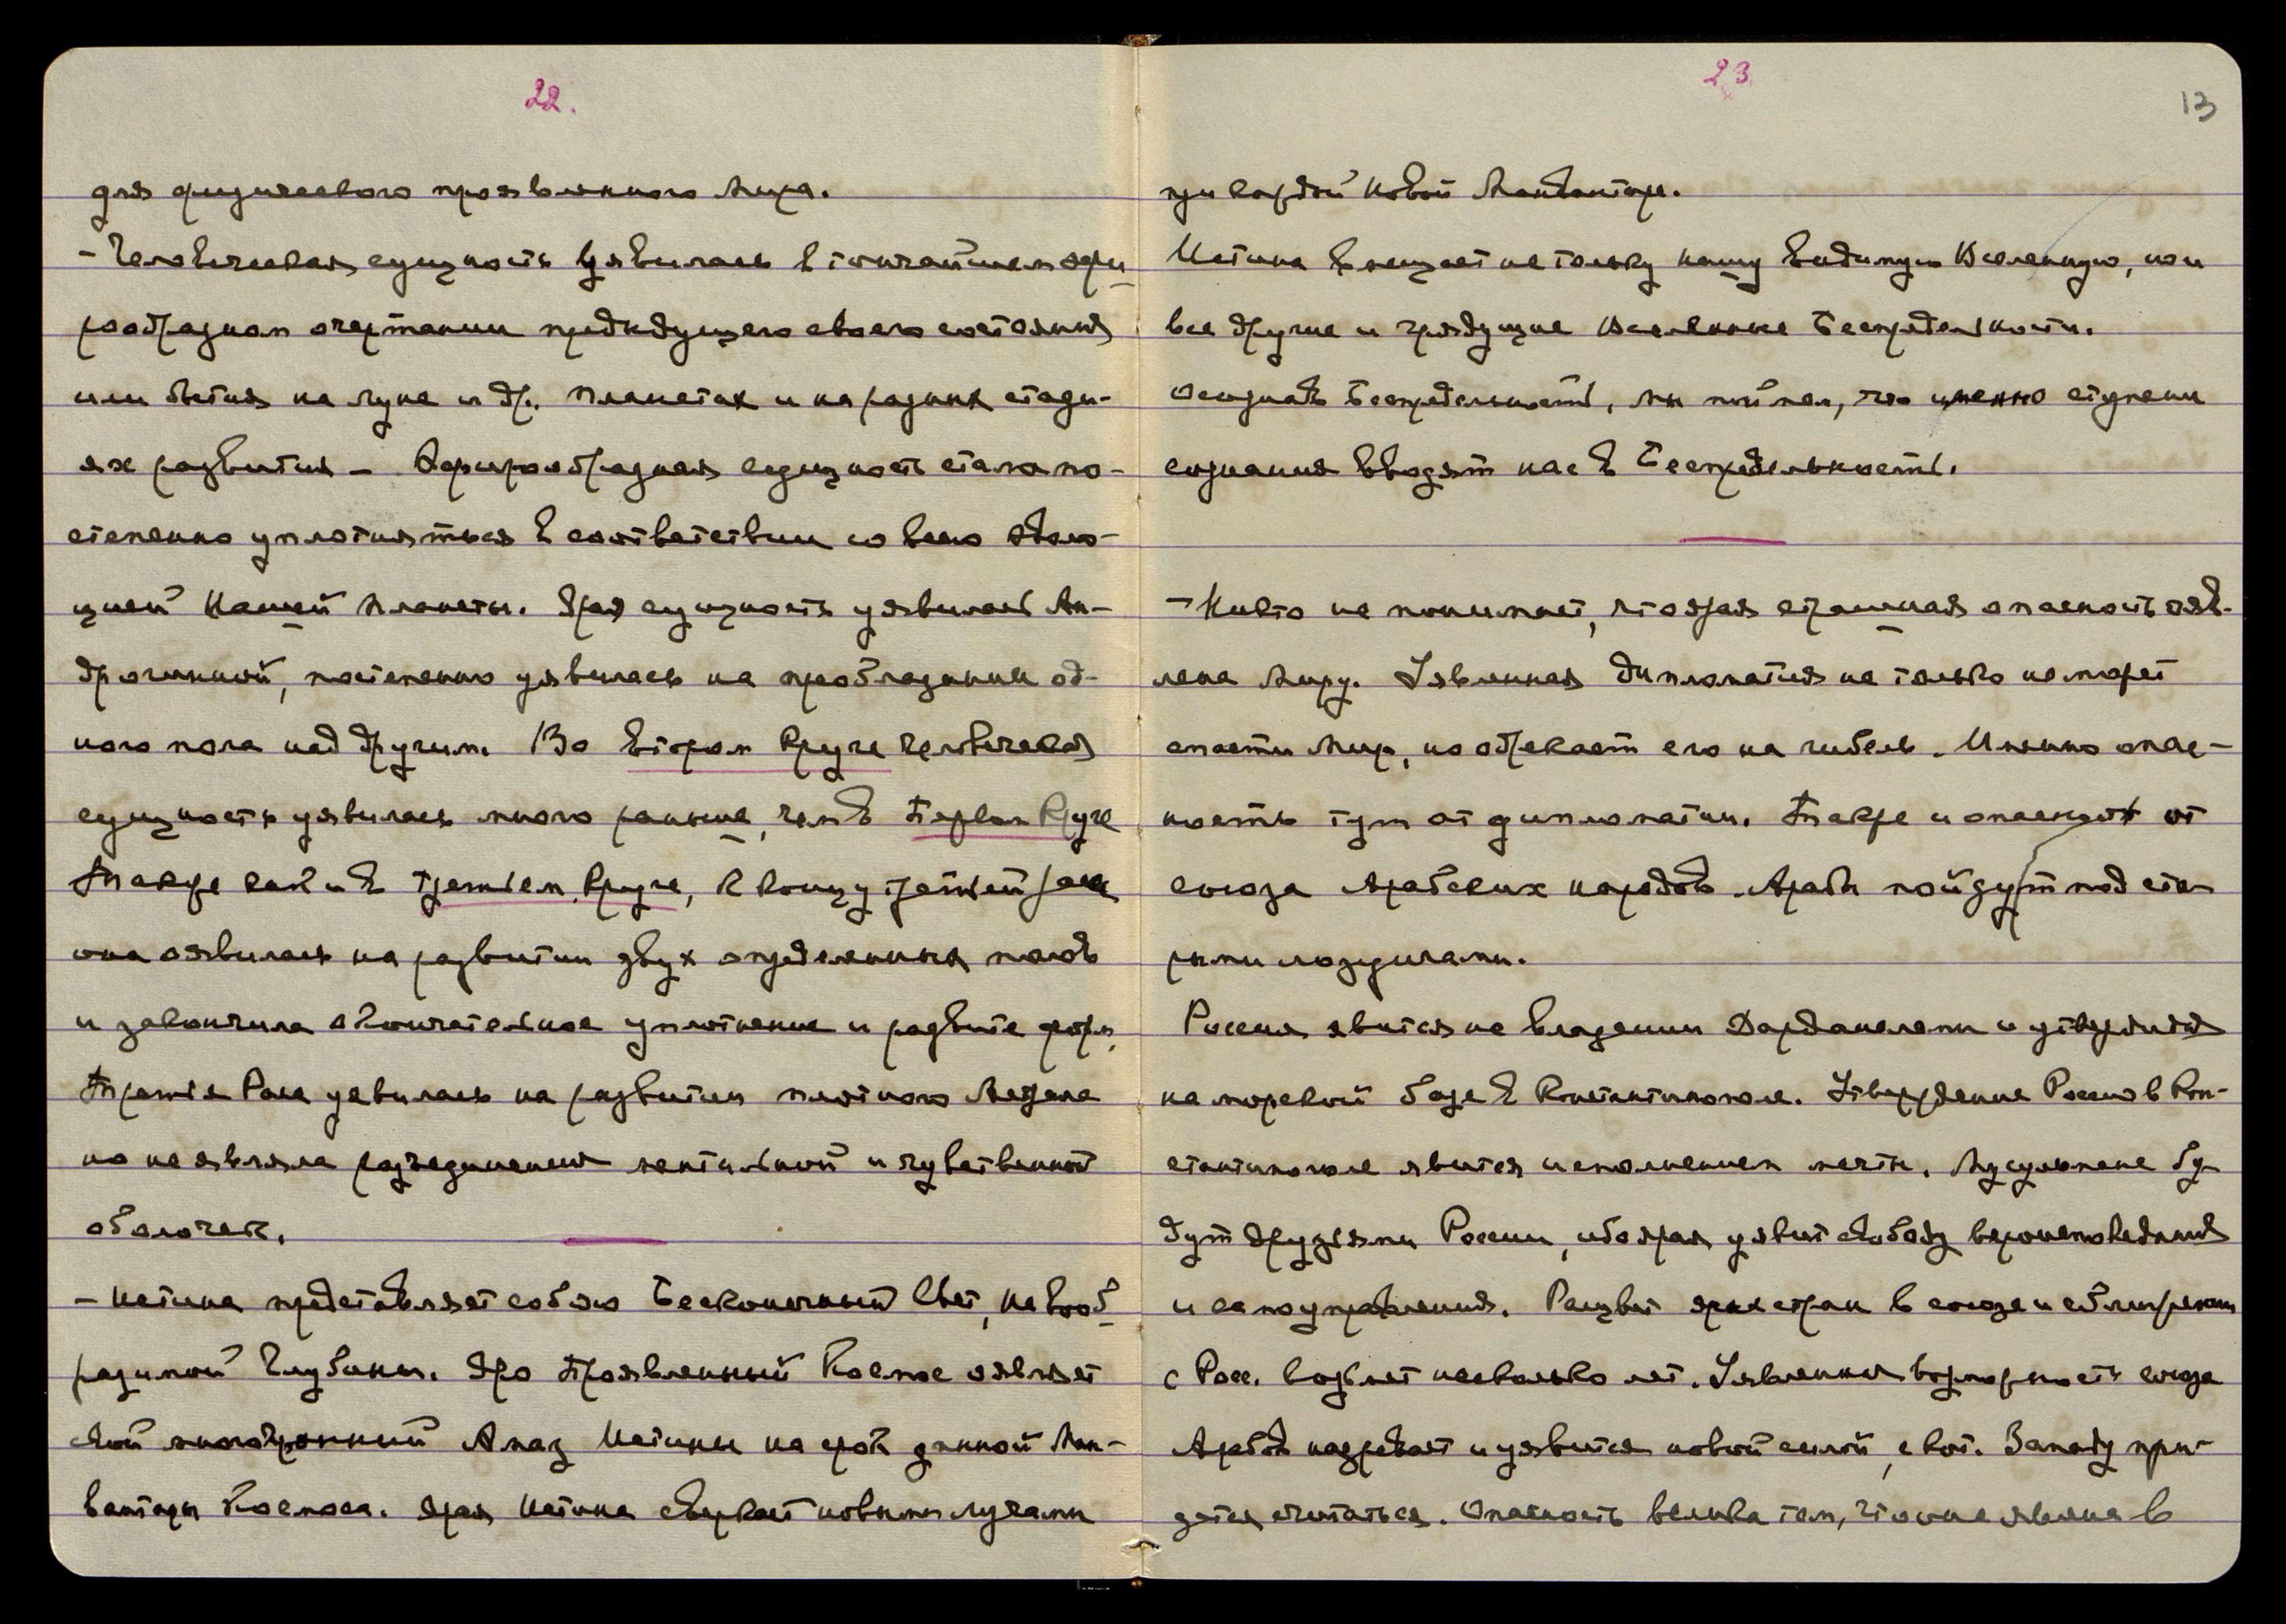 22.
для физического проявленного Мира.
- Человеческая сущность уявилась в тончайшем эфи
рообразном очертании предыдущего своего состояния
или бытия на луне и др. планетах и на разных стади-
ях развития - Эфирообразная сущность стала по-
степенно уплотняться в соответствии со всею эволю-
цией нашей планеты. Ярая сущность уявилась Ан-
дрогинной, постепенно уявилась на преобладании од-
ного пола над другим. Во Втором Круге человеческая
сущность уявилась много раньше, чем в Первом Круге
Также как и в Третьем Круге, к концу третьей расы
она оявилась на развитии двух определенных полов
и закончила окончательное уплотнение и развитие форм,
Третья Раса уявилась на развитии плотного
но не являла разъединения ментальной и чувственной
оболочек.
- Истина представляет собою Бесконечный Свет, невооб
разимой Глубины. Яро Проявленный Космос являет
свой многогранный Алмаз Истины на срок данной Ман-
вантары Космоса. Ярая Истина сверкает новыми лучами
23
13
при каждой новой Манвантаре.
Истина вмещает не только нашу видимую Вселенную, но и
все другие и грядущие Вселенные Беспредельности.
Осознав Беспредельность, мы поймем, что именно ступени
сознания вводят нас в Беспредельность.
- Никто не понимает, что ярая страшная опасность явле
лена миру. Уявленная дипломатия не только не может
спасти Мир, но обрекает его на гибель. Именно опас-
ность тут от дипломатии. Также и опасность от
союза Арабских народов. Арабы пойдут под ста-
рыми лозунгами.
Россия явится на владении Дарданелами и утвердится
на морской базе в Константинополе. Утверждение России в Кон-
стантинополе явится исполнением мечты. Мусульмане бу-
дут друзьями России, ибо ярая уявит свободу вероисповедания
и самоуправления. Расцвет ярых стран в союзе и сближении
с Росс. возьмет несколько лет. Уявленная возможность союза
Арабов назревает и уявится новой силой, с кот. Западу при-
дется считаться. Опасность велика тем, что она явлена в